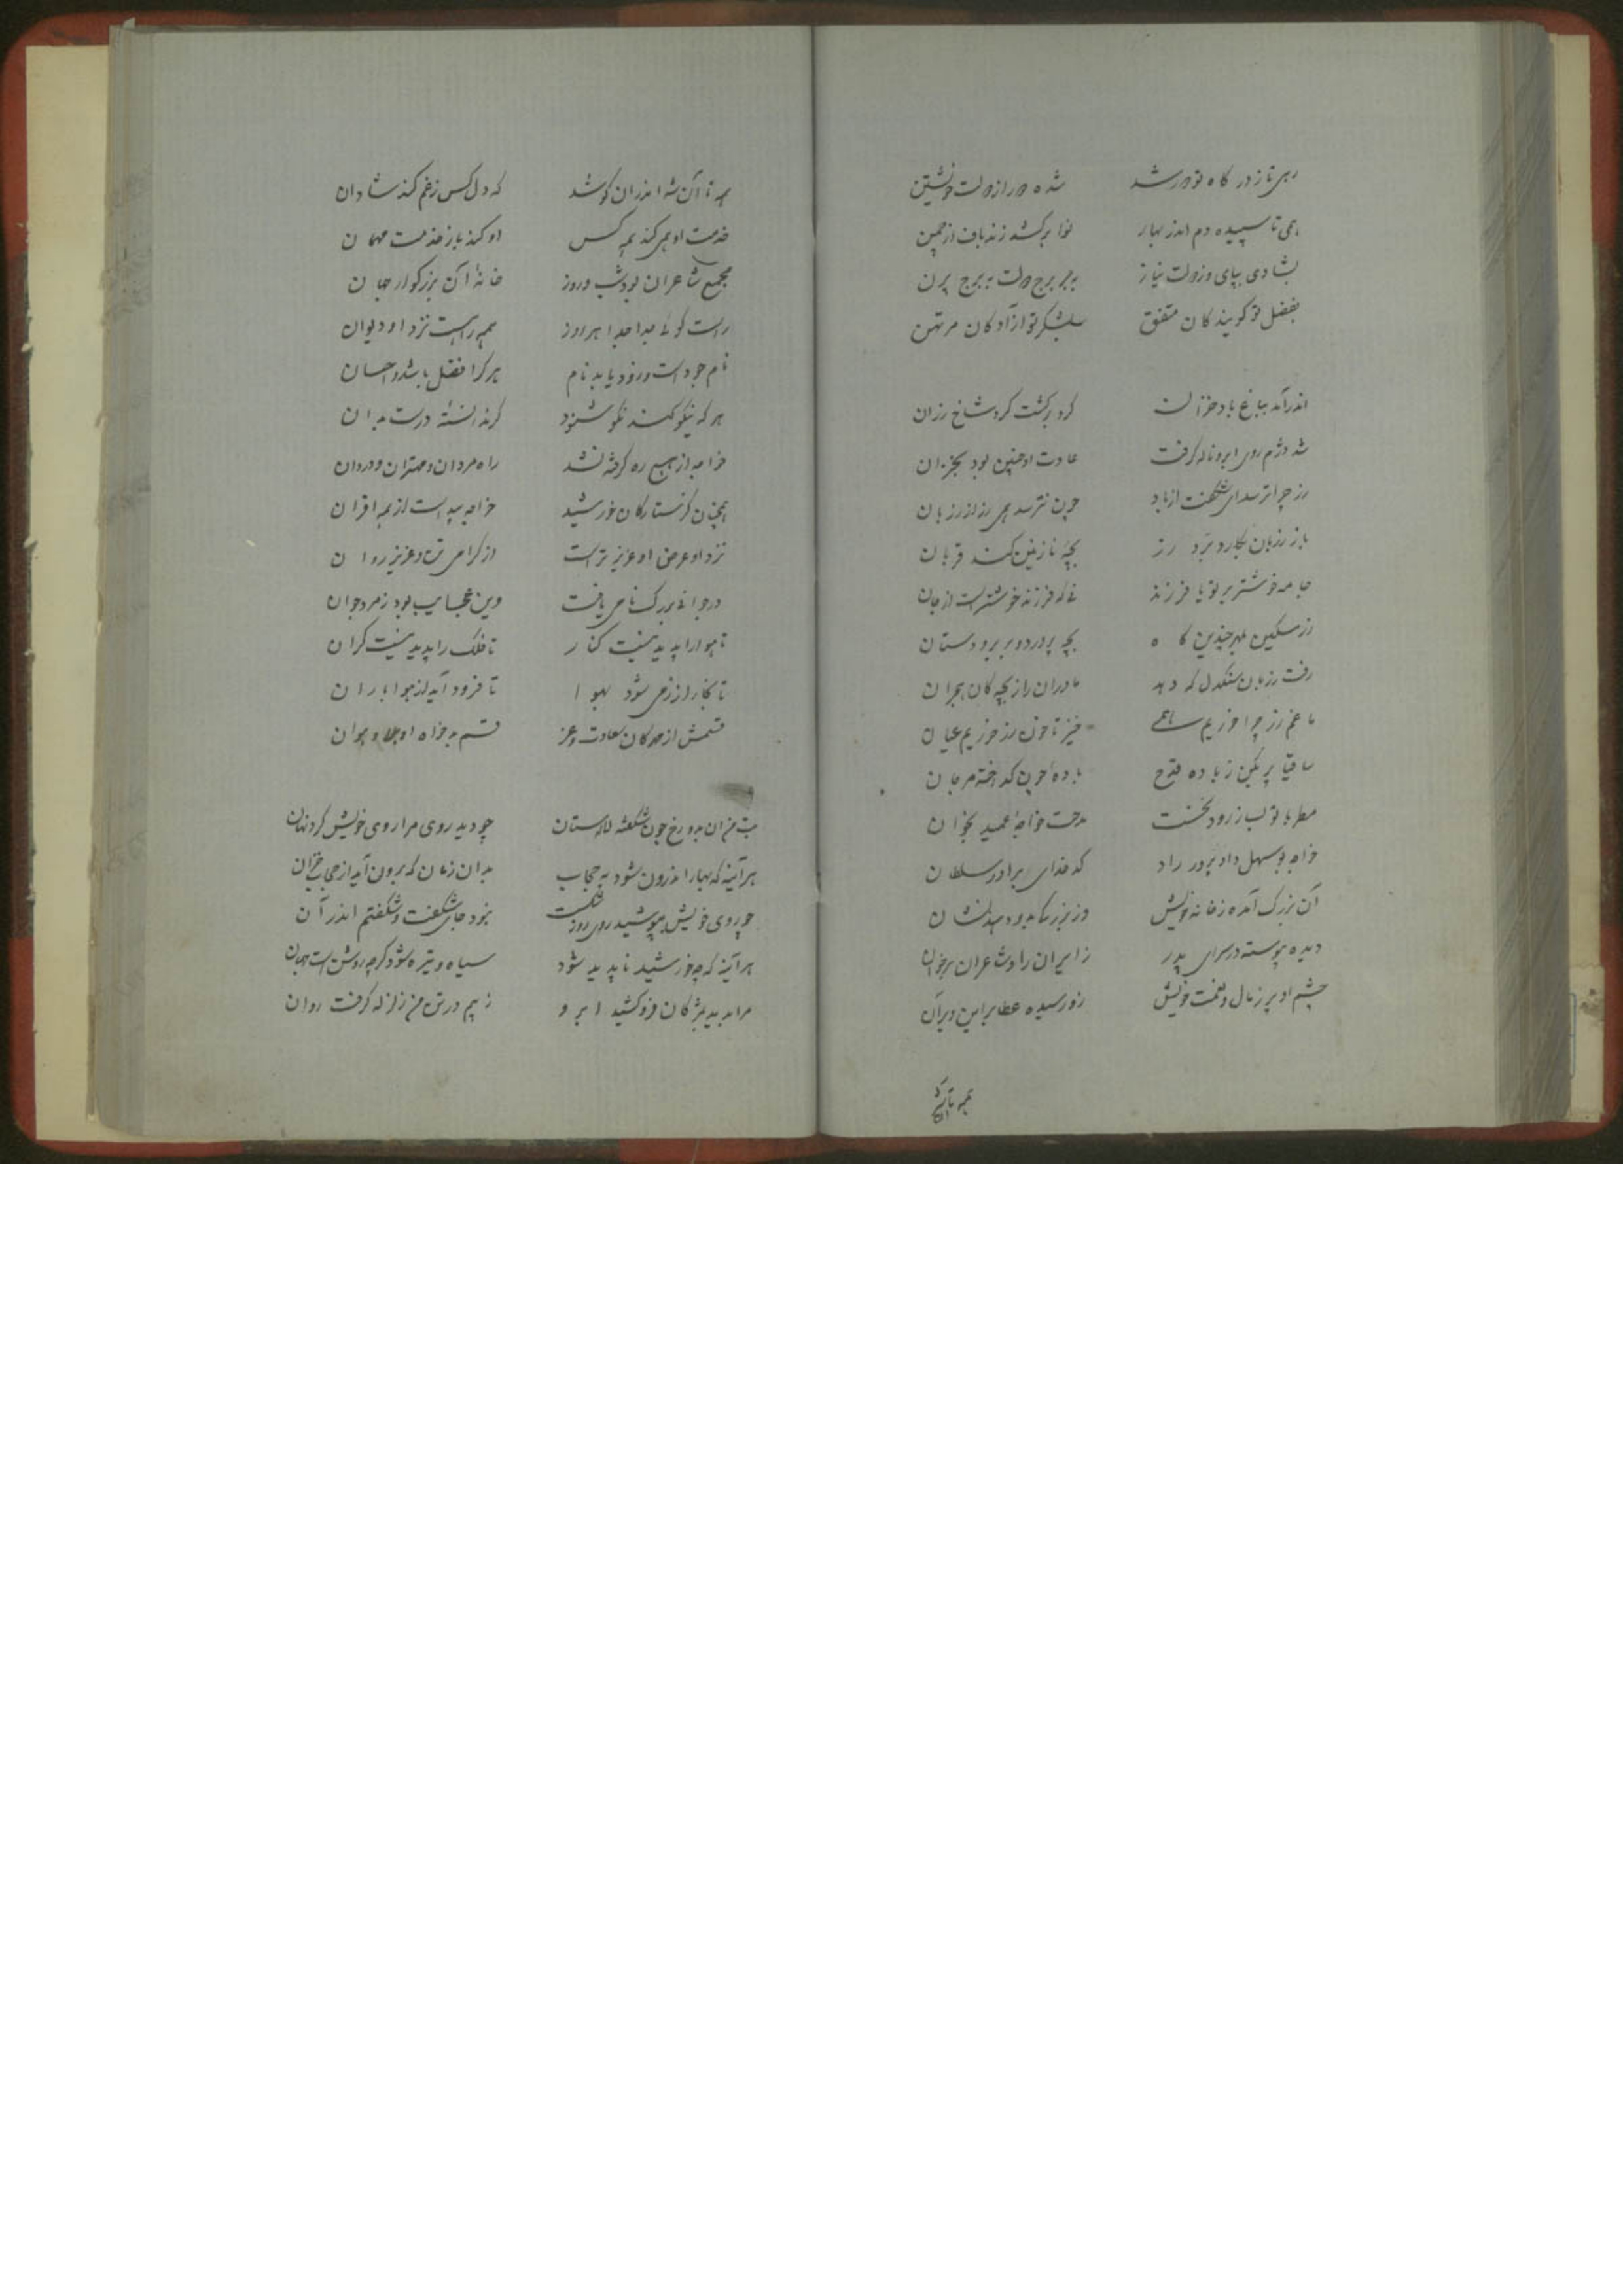 رهی تا ز درگاه تو دور شد شده دور از دولت خویشتن
همی تا سپیده دم اندر بهار نوا برکشد زندباف از چمن
بشادی بپای و ز دولت بناز برج دولت به برج پرن
بفضل تو گویندگان متفق بشکر تو آزادگان مرتهن
اندرآمد بباغ باد خزان گرد برگشت گرد شاخ رزان
شد دژم روی ابر و ناله گرفت عادت او چنین بود بخزان
رز چرا ترسد ای شگفت از باد چون نترسد همی رز از رزبان
باز رزبان بکارد برد رز بچهٔ نازنین کند قربان
جامه خوشتر بر تو یا فرزند نی که فرزند خوشترست از جان
رز مسکین بمهر چندین گاه بچه پرورد در بر و دستان
رفت رزبان سنگدل که دهد مادران را ز بچگان هجران
ما غم رز چرا خوریم همی خیز تا خون رز خوریم عیان
ساقیا پر بکن ز باده قدح باده چون گداخته مرجان
مطربا تو بساز رود نخست مدحت خواجهٔ عمید بخوان
خواجه بوسهل دادپرور راد کدخدای برادر سلطان
آن بزرگ آمده ز خانه خویش وز بزرگی بدو دهند نشان
دیده پیوسته در سرای پدر زایران را و شاعران بر خوان
چشم او پر ز مال و نعمت خویش زو رسیده عطا بر این و بر آن
همه تا آن
همه تا آن شه اندران کوشد که دل کس ز غم کند شادان
خدمت او همی کند همه کس او کند باز خدمت مهمان
مجمع شاعران بود شب و روز خانهٔ آن بزرگوار جهان
راست گوئی جدا جدا هر روز همه راهست نزد او دیوان
نام جودست و زود یابد نام هر کرا فضل باشد و احسان
هر که نیکو کند نکو شنود گر ندانسته درست بدان
خواجه از هیچ ره گرفته نشد راه مردان و مهتران و ردان
همچنان کز ستارگان خورشید خواجه پیداست از همه اقران
نزد او عرض او عزیزترست از گرامی تن و عزیز روان
در جوانی بزرگ نامی یافت وین عجایب بود ز مرد جوان
تا هوا را پدید نیست کنار تا فلک را پدید نیست کران
تا بخار از زمی شود بهوا تا فرود آید از هوا باران
قسمش از مهرگان سعادت و عز قسم بدخواه او بلا و هوان
بت من آن بدو رخ چون شکفته لالستان چو دید روی مرا روی خویش کرد نهان
هر آینه که بهار اندرون شود به حجاب بدان زمان که برون آید از حجاب خزان
چو روی خویش بپوشید روی روز شکست نبود جای شگفت و شگفتم اندر آن
هر آینه که چو خورشید ناپدید شود سیاه و تیره شود گرچه روشنست جهان
مرا بدید بمژگان فرو کشید ابرو ز بیم در تن من زلزله گرفت روان